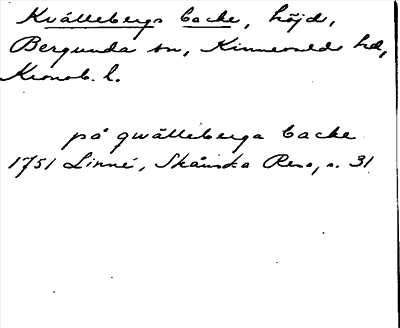 Kvällebergs backe, höjd,
Bergunda sn, Kinnevalds hd,
Kronob. l.
på qwälleberga backe
1751 Linné, Skånska Resa, s. 31